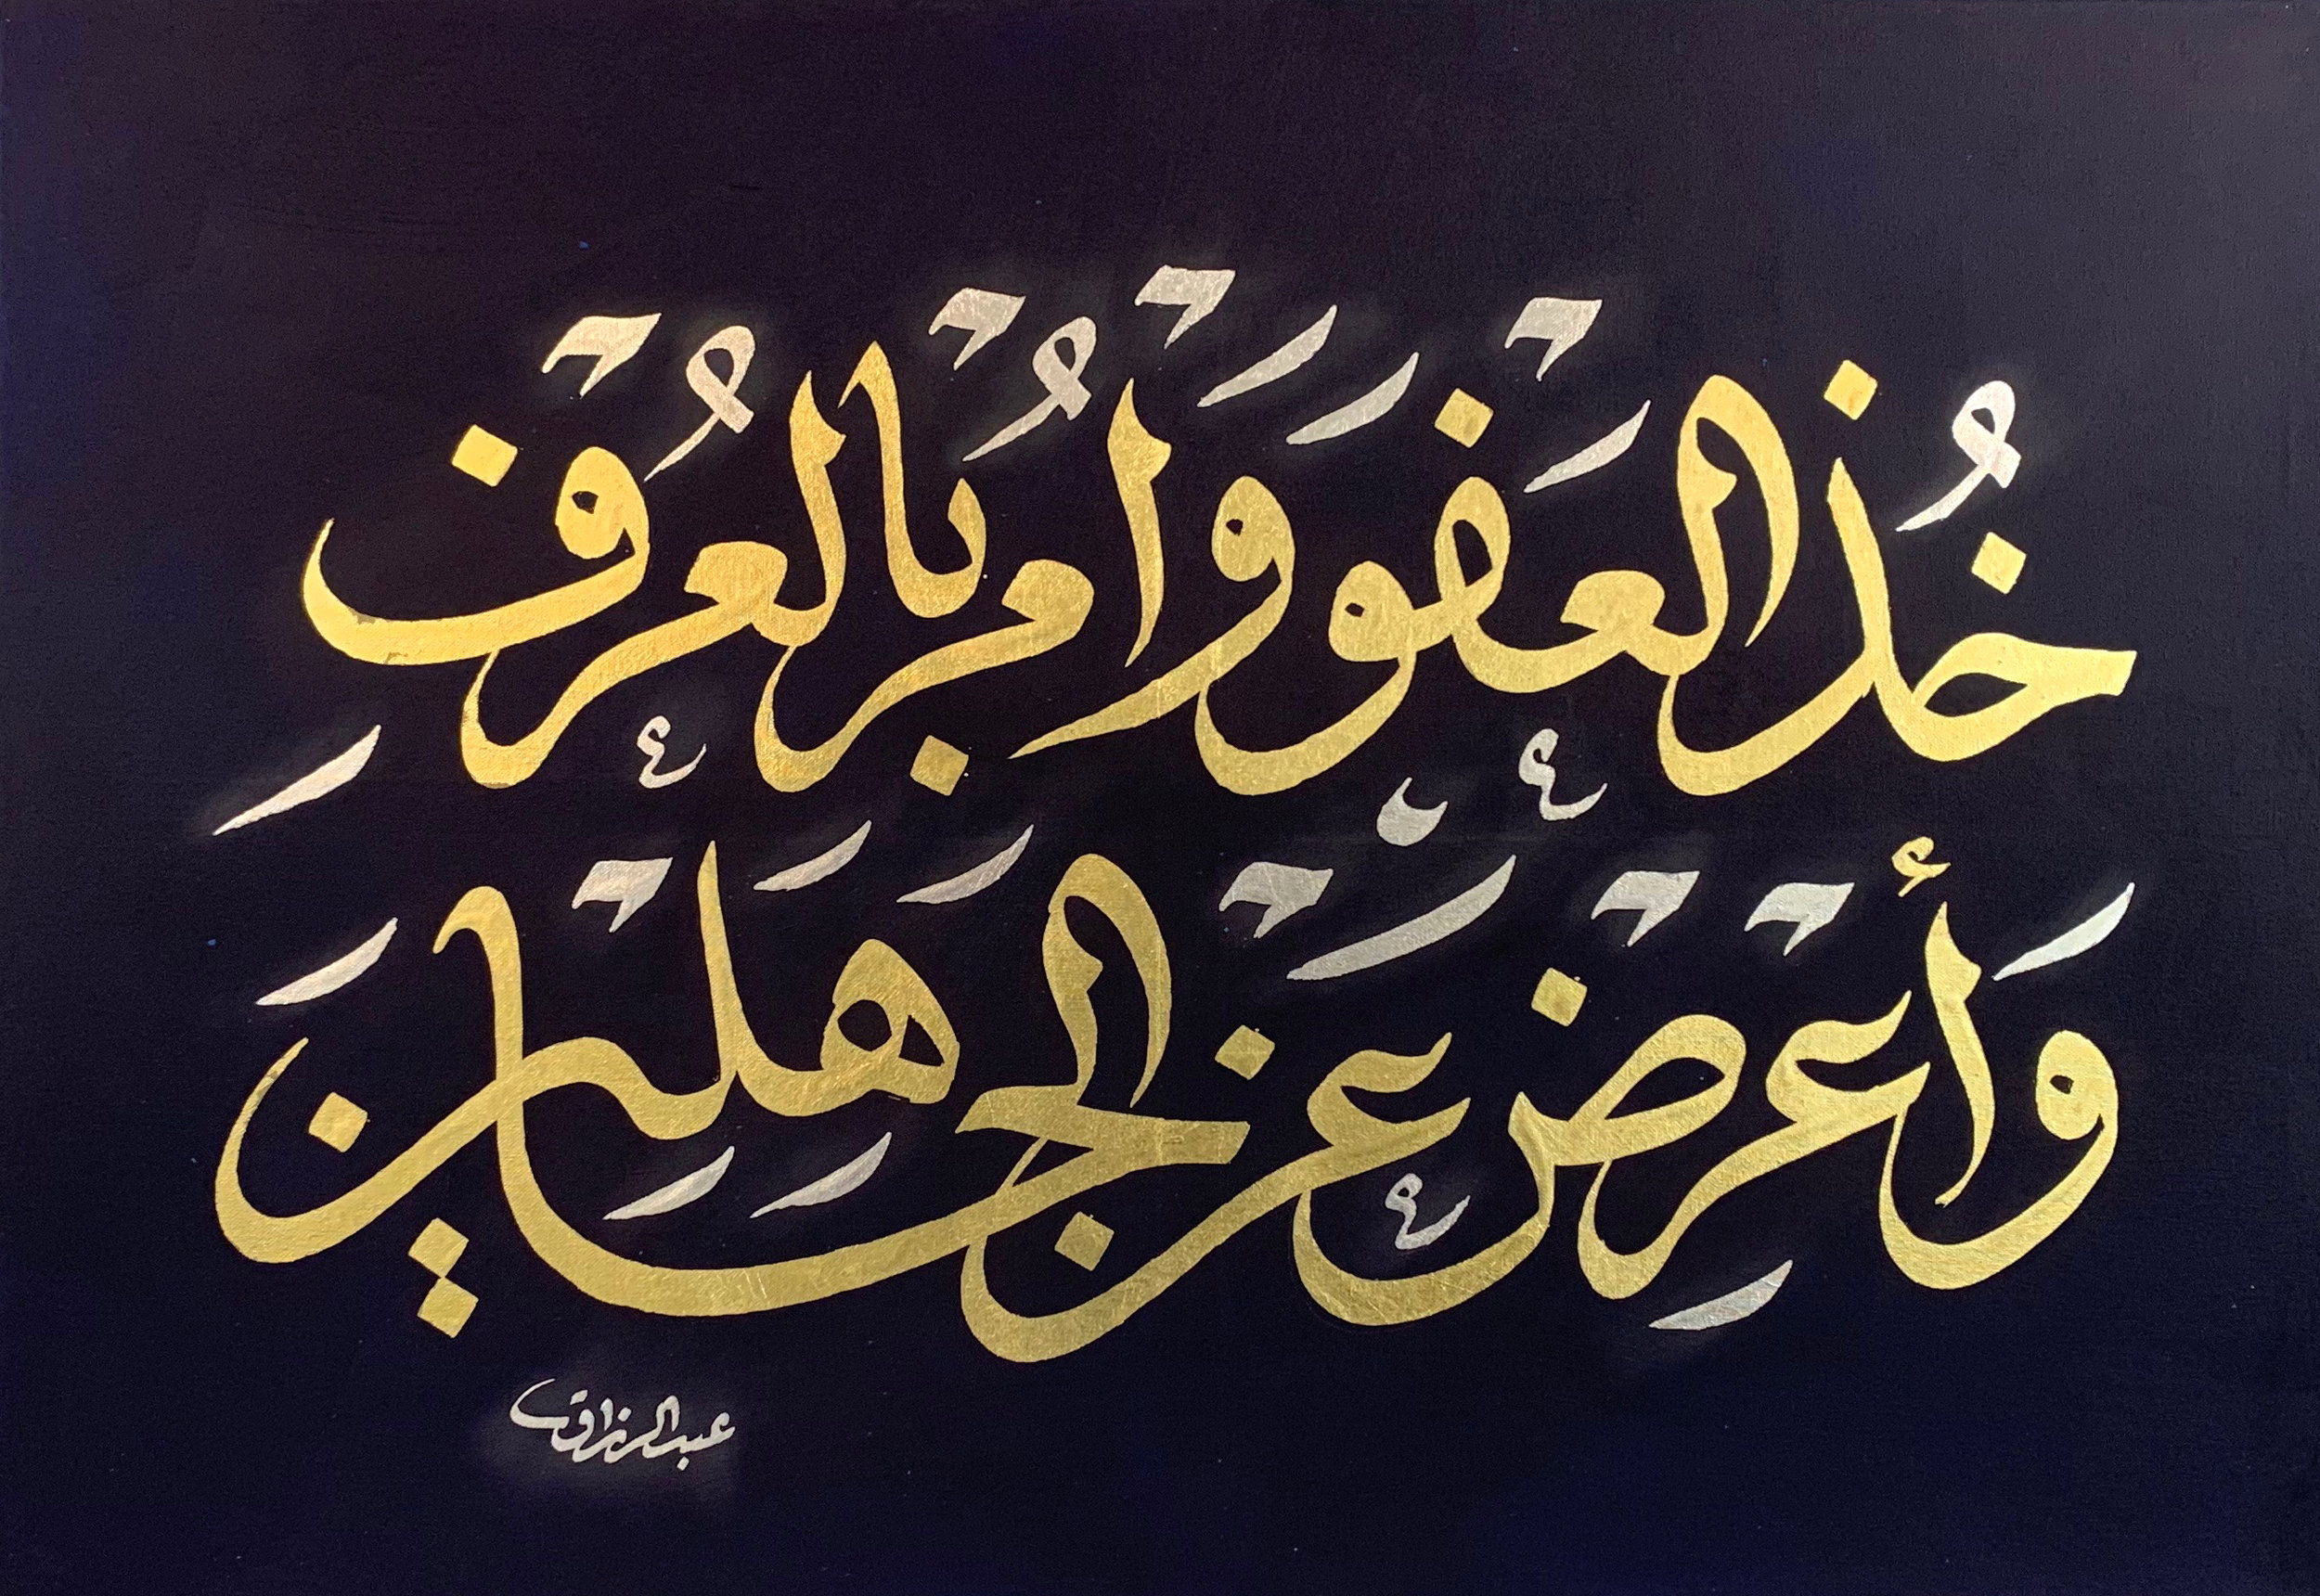 خُذِ الْعَفْوَ وَأْمُرْ بِالْعُرْفِ
وَأَعْرِضْ عَنِ الْجَاهِلِينَ
عبد الرزاق